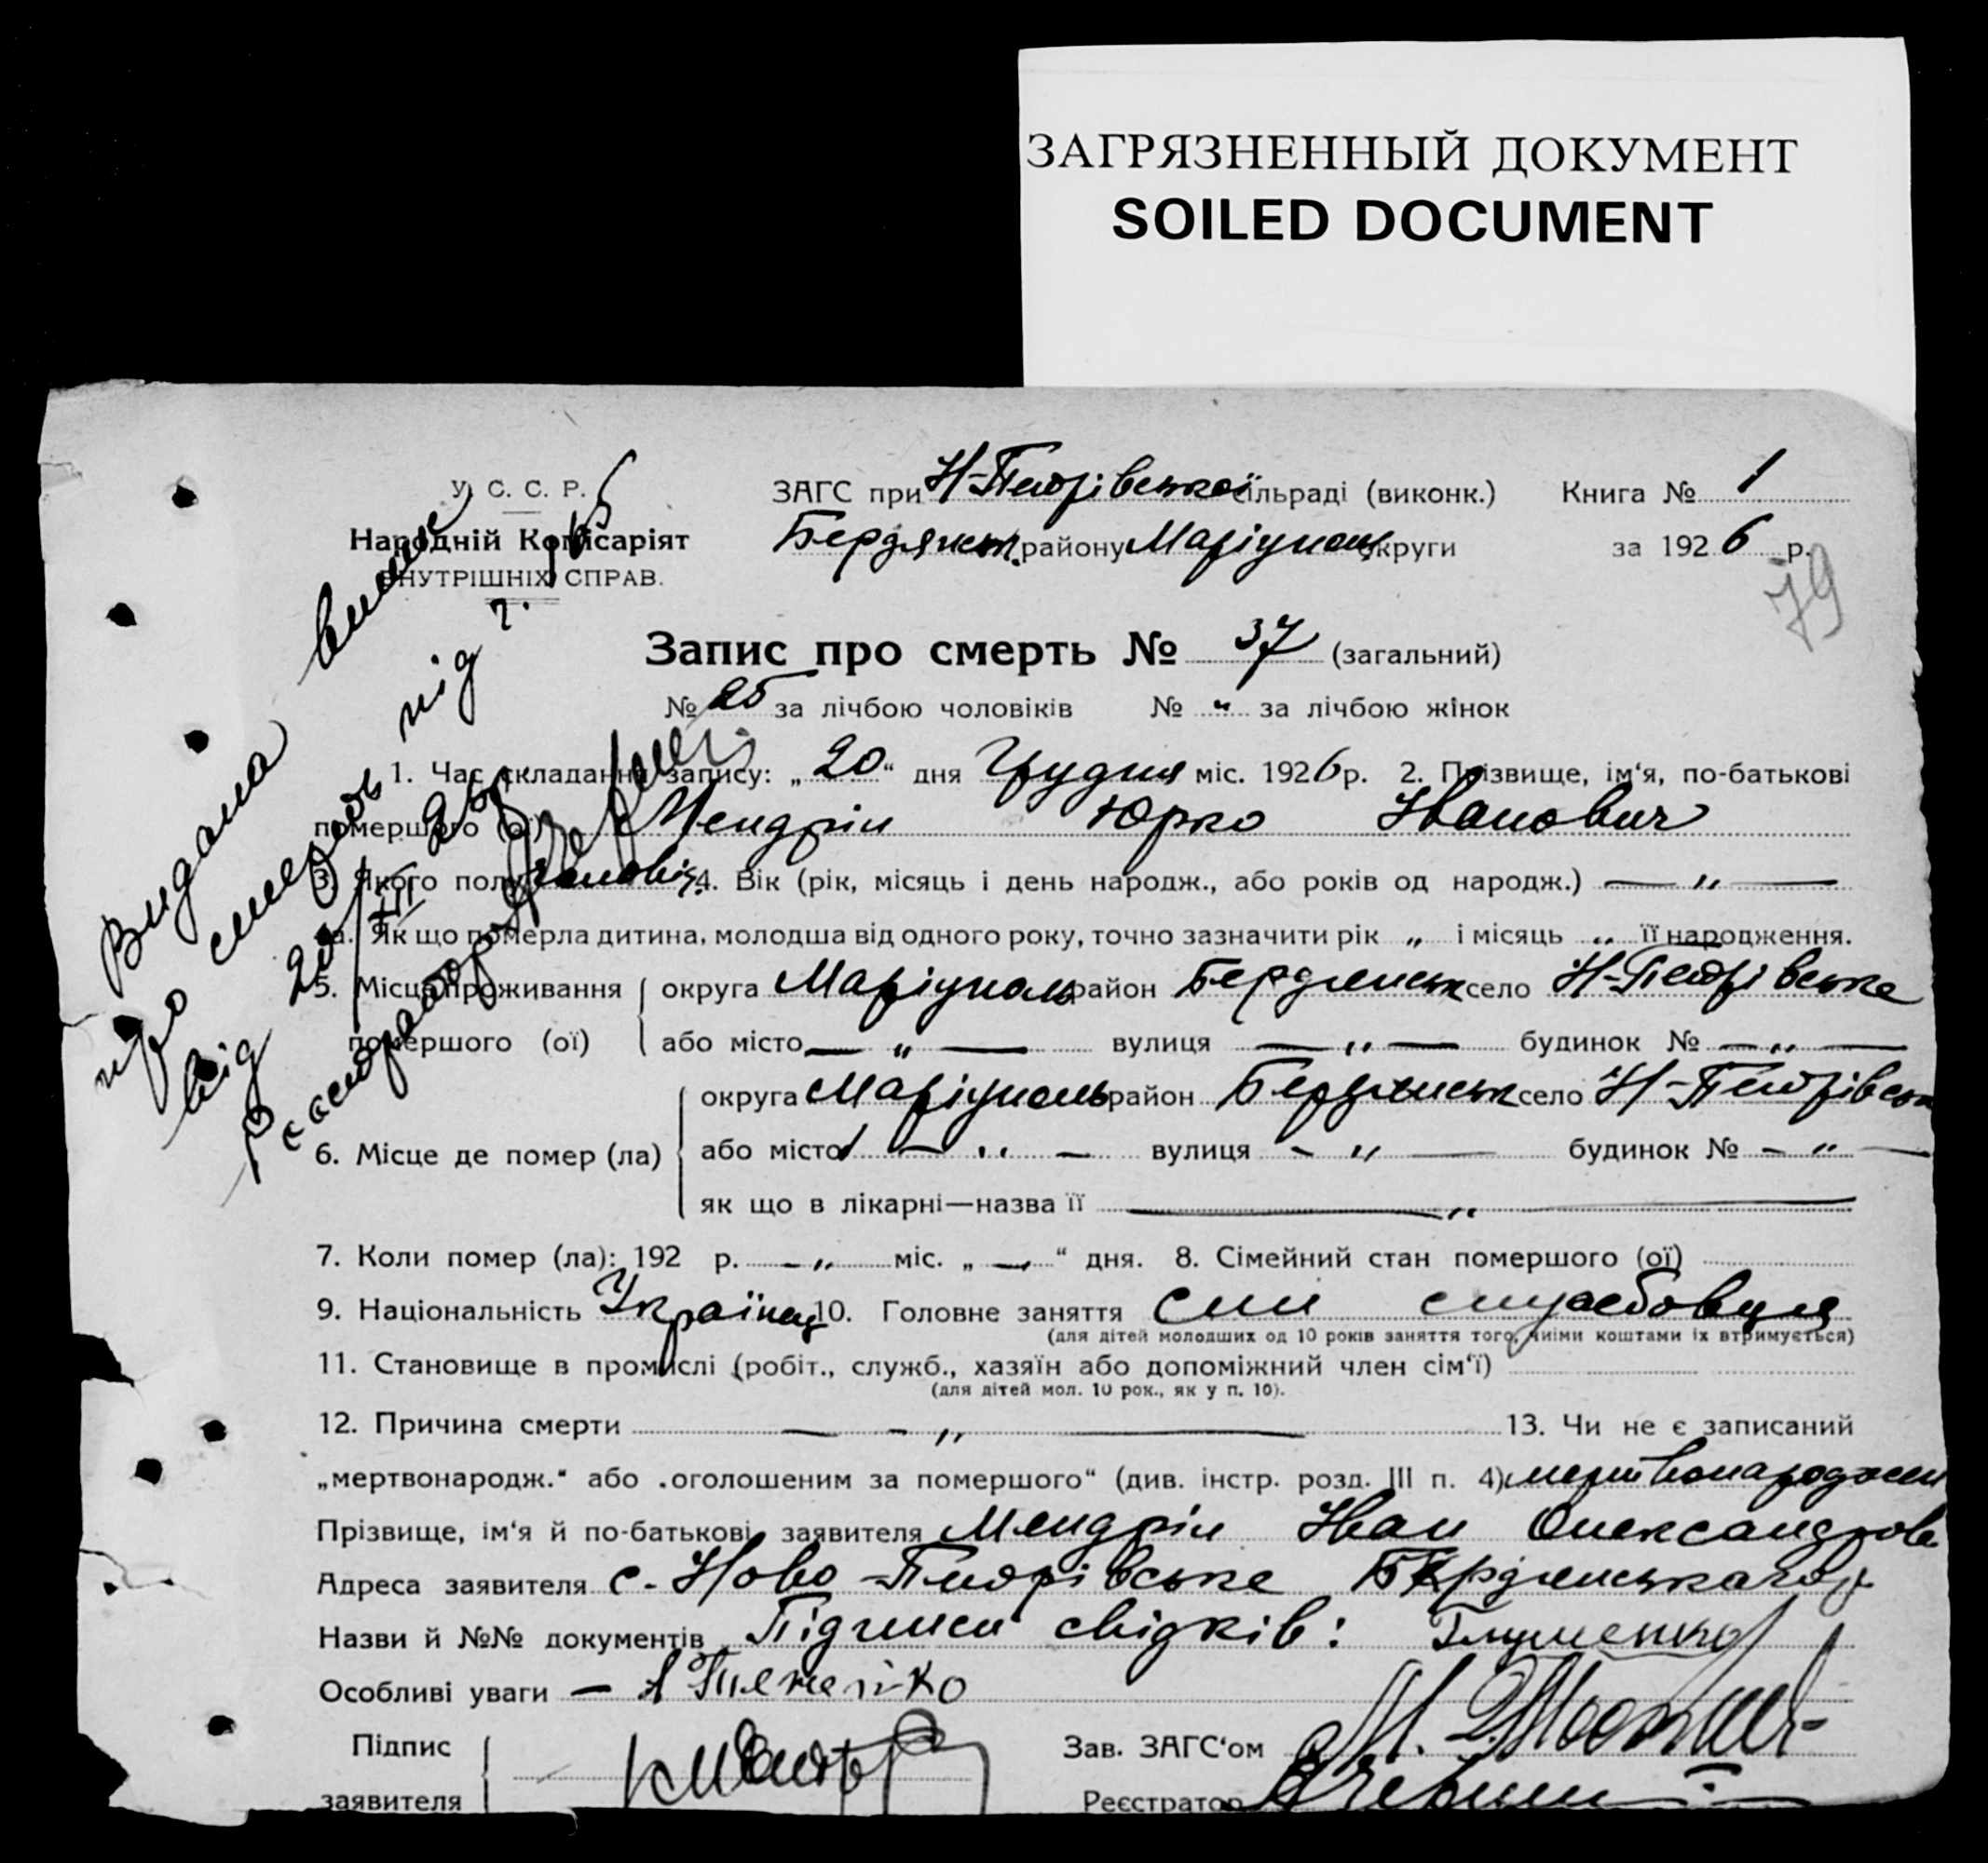 ЗАГРЯЗНЕННЫЙ ДОКУМЕНТ
SOILED DOCUMENT
У. С. С. Р.
Народній Комісаріят
ВНУТРІШНІХ СПРАВ.
ЗАГС при Н-Петрівської сільраді (виконк.) Книга № 1
Бердянськ. району Маріупольськ округи за 1926 р.
79
Запис про смерть № 37 (загальний)
№ 25 за лічбою чоловіків № „ за лічбою жінок
1. Час складання запису: „20“ дня Грудня міс. 1926 р. 2. Прізвище, ім‘я, по-батькові
помершого (ої) Мендрін Юрко Иванович
3. Якого полу чоловіч. 4. Вік (рік, місяць і день народж., або років од народж.) — „ —
4а. Як що померла дитина, молодша від одного року, точно зазначити рік „ і місяць „ її народження.
5. Місце проживання помершого (ої) округа Маріуполь район Бердянськ село Н-Петрівське
або місто — „ — вулиця — „ — будинок № — „ —
6. Місце де помер (ла) округа Маріуполь район Бердянськ село Н-Петрівськ
або місто — „ — вулиця - „ — будинок № - „ —
як що в лікарні—назва її — „ —
7. Коли помер (ла): 192 р. — „ міс. „ — “ дня. 8. Сімейний стан помершого (ої)
9. Національність Українец 10. Головне заняття син службовця
(для дітей молодших од 10 років заняття того, чиїми коштами їх втримується)
11. Становище в промислі (робіт., служб., хазяїн або допоміжний член сім‘ї)
(для дітей мол. 10 рок., як у п. 10).
12. Причина смерти — - „ — 13. Чи не є записаний
„мертвонародж.“ або „оголошеним за помершого“ (див. інстр. розд. III п. 4) мертвонароджен
Прізвище, ім‘я й по-батькові заявителя Мендрін Иван Олександров
Адреса заявителя с. Ново-Петрівське Бердянського р
Назви й №№ документів Підписи свідків:
Особливі уваги —
Підпис заявителя
Зав. ЗАГС‘ом
Реєстратор
Видана випис
про смерть під ч.
від 20/XII 26р
Реєстратор